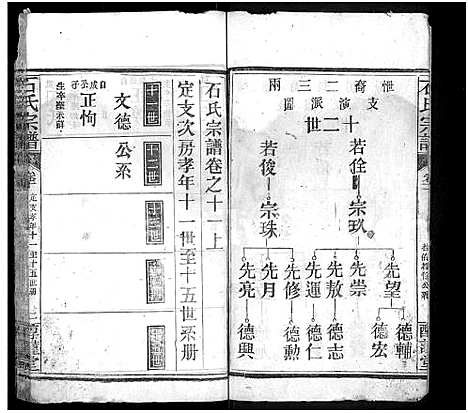 石氏宗譜
惟裔二三兩
支演派圖
十二世
若佺 宗玖
若俊 宗珠
先望 德輔 德宏
先崇
先敖 德志
先運 德仁
先修 德勳
先月
先亮 德興
石氏宗譜卷之十一上
定支次房孝年十一世至十五世系册
十一世
十二世
十三世
十四世
十五世
文德公系
正恂
生卒塟未詳
石氏宗譜
定支孝年十一至十五世册